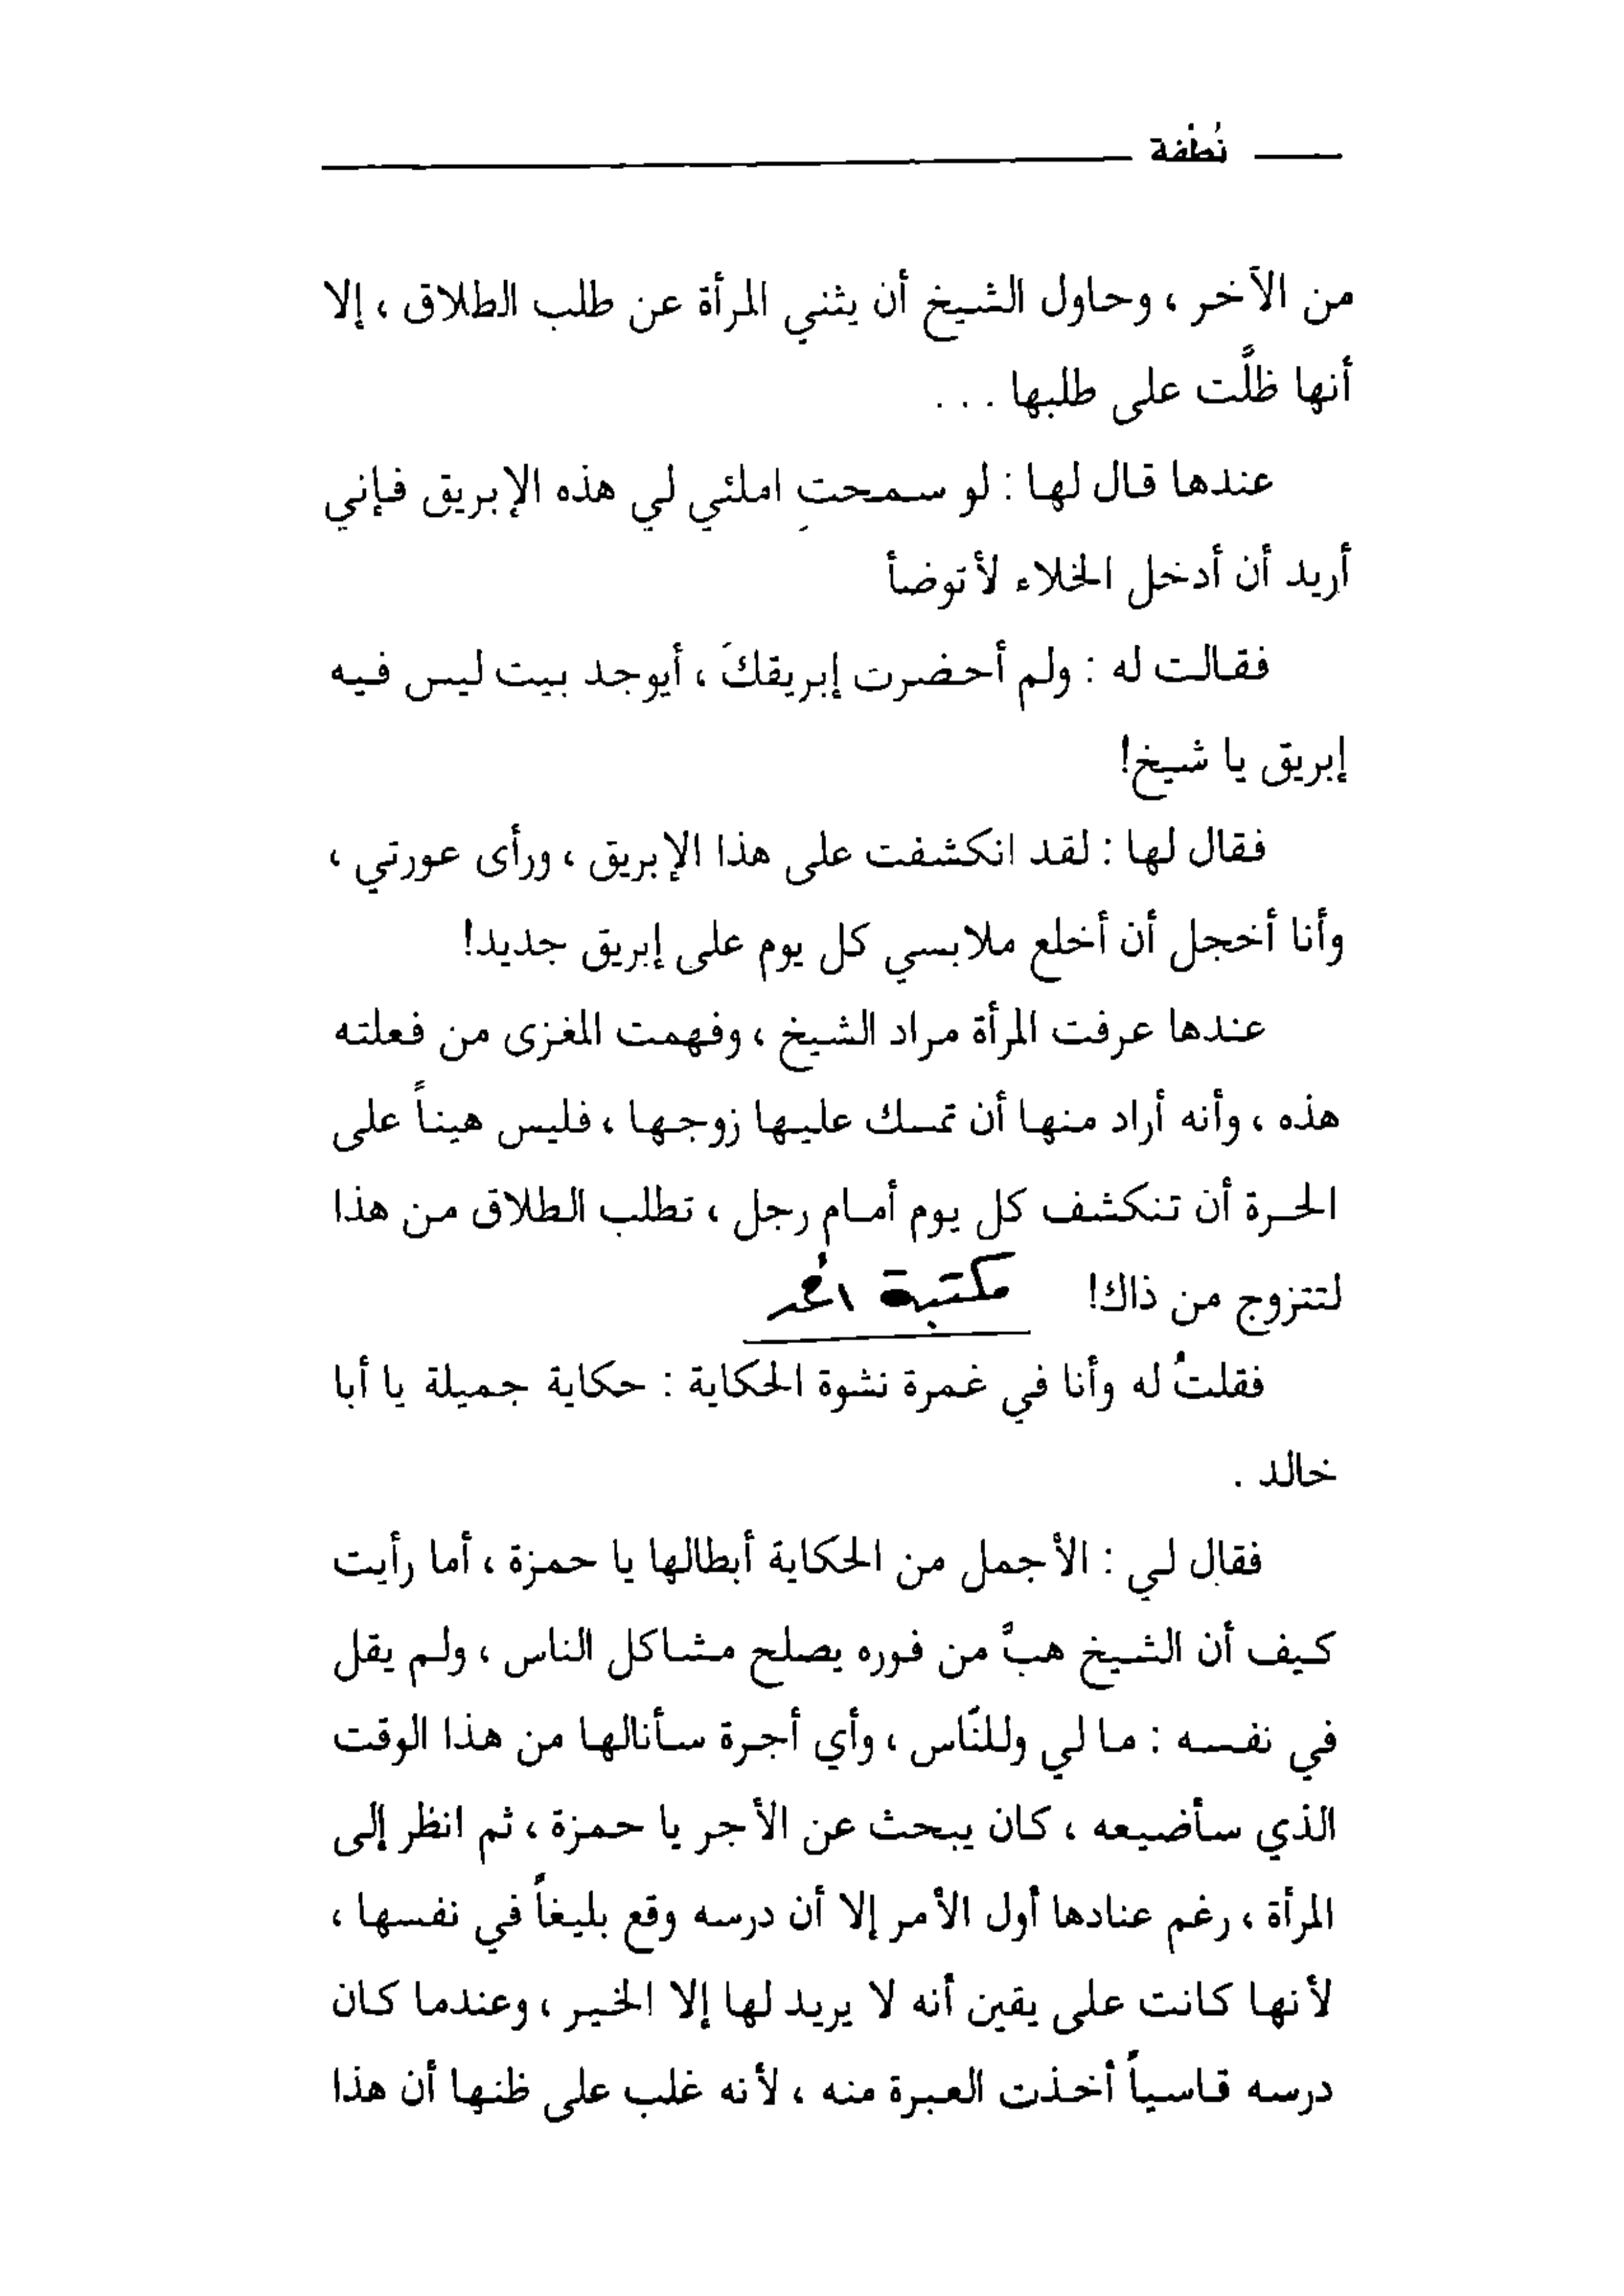 نُطْفة
من الآخر ، وحاول الشيخ أن يثني المرأة عن طلب الطلاق ، إلا
أنها ظلَّت على طلبها . . .
عندها قال لها : لو سمحتِ املئي لي هذه الإبريق فإني
أريد أن أدخل الخلاء لأتوضأ
فقالت له : ولم أحضرت إبريقكَ ، أيوجد بيت ليس فيه
إبريق يا شيخ!
فقال لها : لقد انكشفت على هذا الإبريق ، ورأى عورتي ،
وأنا أخجل أن أخلع ملابسي كل يوم على إبريق جديد!
عندها عرفت المرأة مراد الشيخ ، وفهمت المغزى من فعلته
هذه ، وأنه أراد منها أن تمسك عليها زوجها ، فليس هيناً على
الحرة أن تنكشف كل يوم أمام رجل ، تطلب الطلاق من هذا
لتتزوج من ذاك! مكتبة
فقلتُ له وأنا في غمرة نشوة الحكاية : حكاية جميلة يا أبا
خالد .
فقال لي : الأجمل من الحكاية أبطالها يا حمزة ، أما رأيت
كيف أن الشيخ هبَّ من فوره يصلح مشاكل الناس ، ولم يقل
في نفسه : ما لي وللنّاس ، وأي أجرة سأنالها من هذا الوقت
الذي سأضيعه ، كان يبحث عن الأجر يا حمزة ، ثم انظر إلى
المرأة ، رغم عنادها أول الأمر إلا أن درسه وقع بليغاً في نفسها ،
لأنها كانت على يقين أنه لا يريد لها إلا الخير ، وعندما كان
درسه قاسياً أخذت العبرة منه ، لأنه غلب على ظنها أن هذا